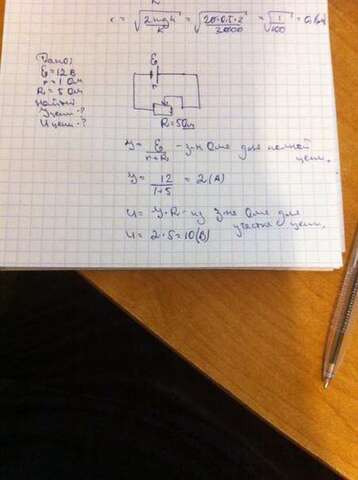 r = √(2mgh/k) = √(20·0.5·2/2000) = √(1/100) =
Дано:
ℰ = 12 В
r = 1 Ом
R = 5 Ом
Найти
I цепи - ?
U цепи - ?
ℰ
r
R = 5 Ом
I = ℰ/(r+R) - з-н Ома для полной
цепи.
I = 12/(1+5) = 2 (А)
U = I·R - из з-на Ома для
участка цепи.
U = 2·5 = 10 (В)